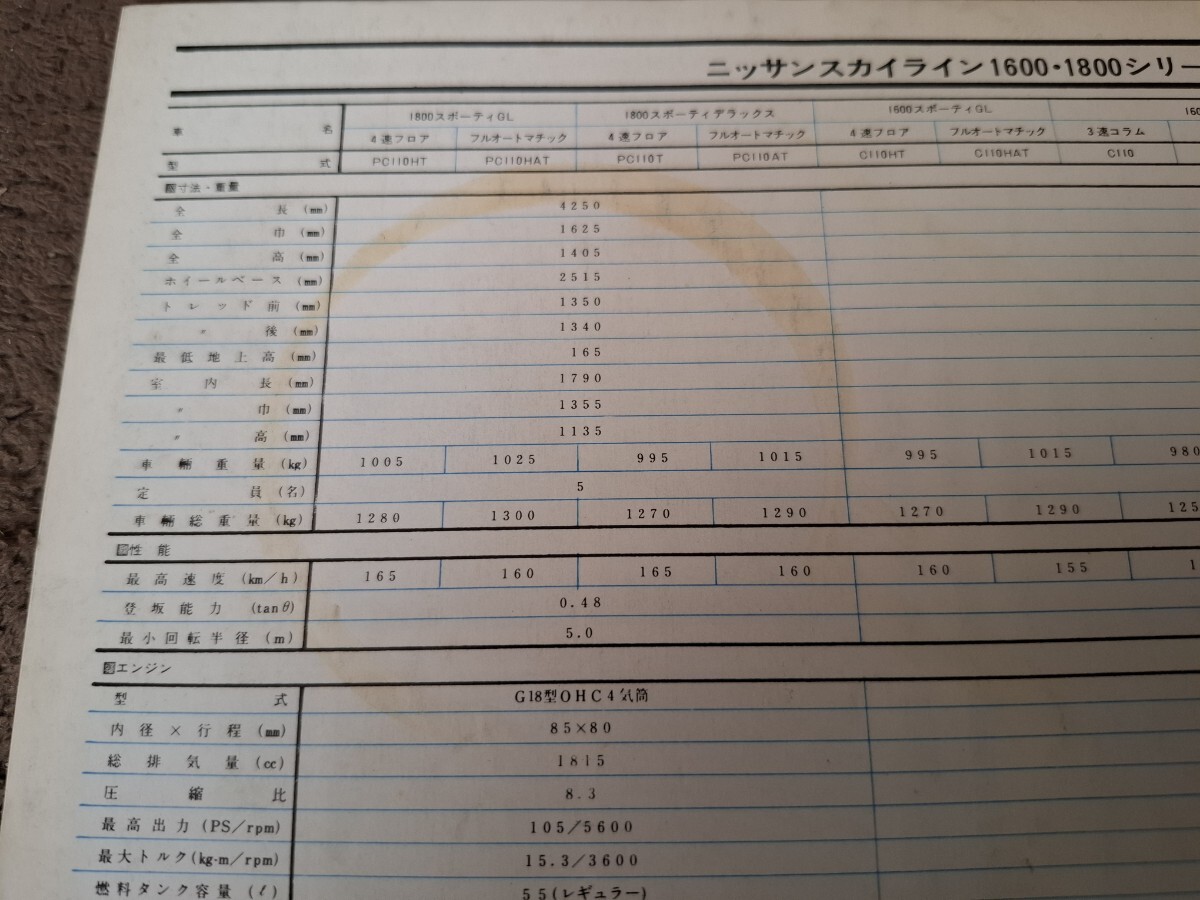 ニッサンスカイライン1600・1800シリー
車名 1800スポーティGL 1800スポーティデラックス 1600スポーティGL 160
4速フロア フルオートマチック 4速フロア フルオートマチック 4速フロア フルオートマチック 3速コラム
型式 PC110HT PC110HAT PC110T PC110AT C110HT C110HAT C110
図寸法・重量
全長(mm) 4250
全巾(mm) 1625
全高(mm) 1405
ホイールベース(mm) 2515
トレッド前(mm) 1350
〃後(mm) 1340
最低地上高(mm) 165
室内長(mm) 1790
〃巾(mm) 1355
〃高(mm) 1135
車輛重量(kg) 1005 1025 995 1015 995 1015 980
定員(名) 5
車輛総重量(kg) 1280 1300 1270 1290 1270 1290 125
図性能
最高速度(km/h) 165 160 165 160 160 155 1
登坂能力(tanθ) 0.48
最小回転半径(m) 5.0
図エンジン
型式 G18型OHC4気筒
内径×行程(mm) 85×80
総排気量(cc) 1815
圧縮比 8.3
最高出力(PS/rpm) 105/5600
最大トルク(kg-m/rpm) 15.3/3600
燃料タンク容量(ℓ) 55(レギュラー)